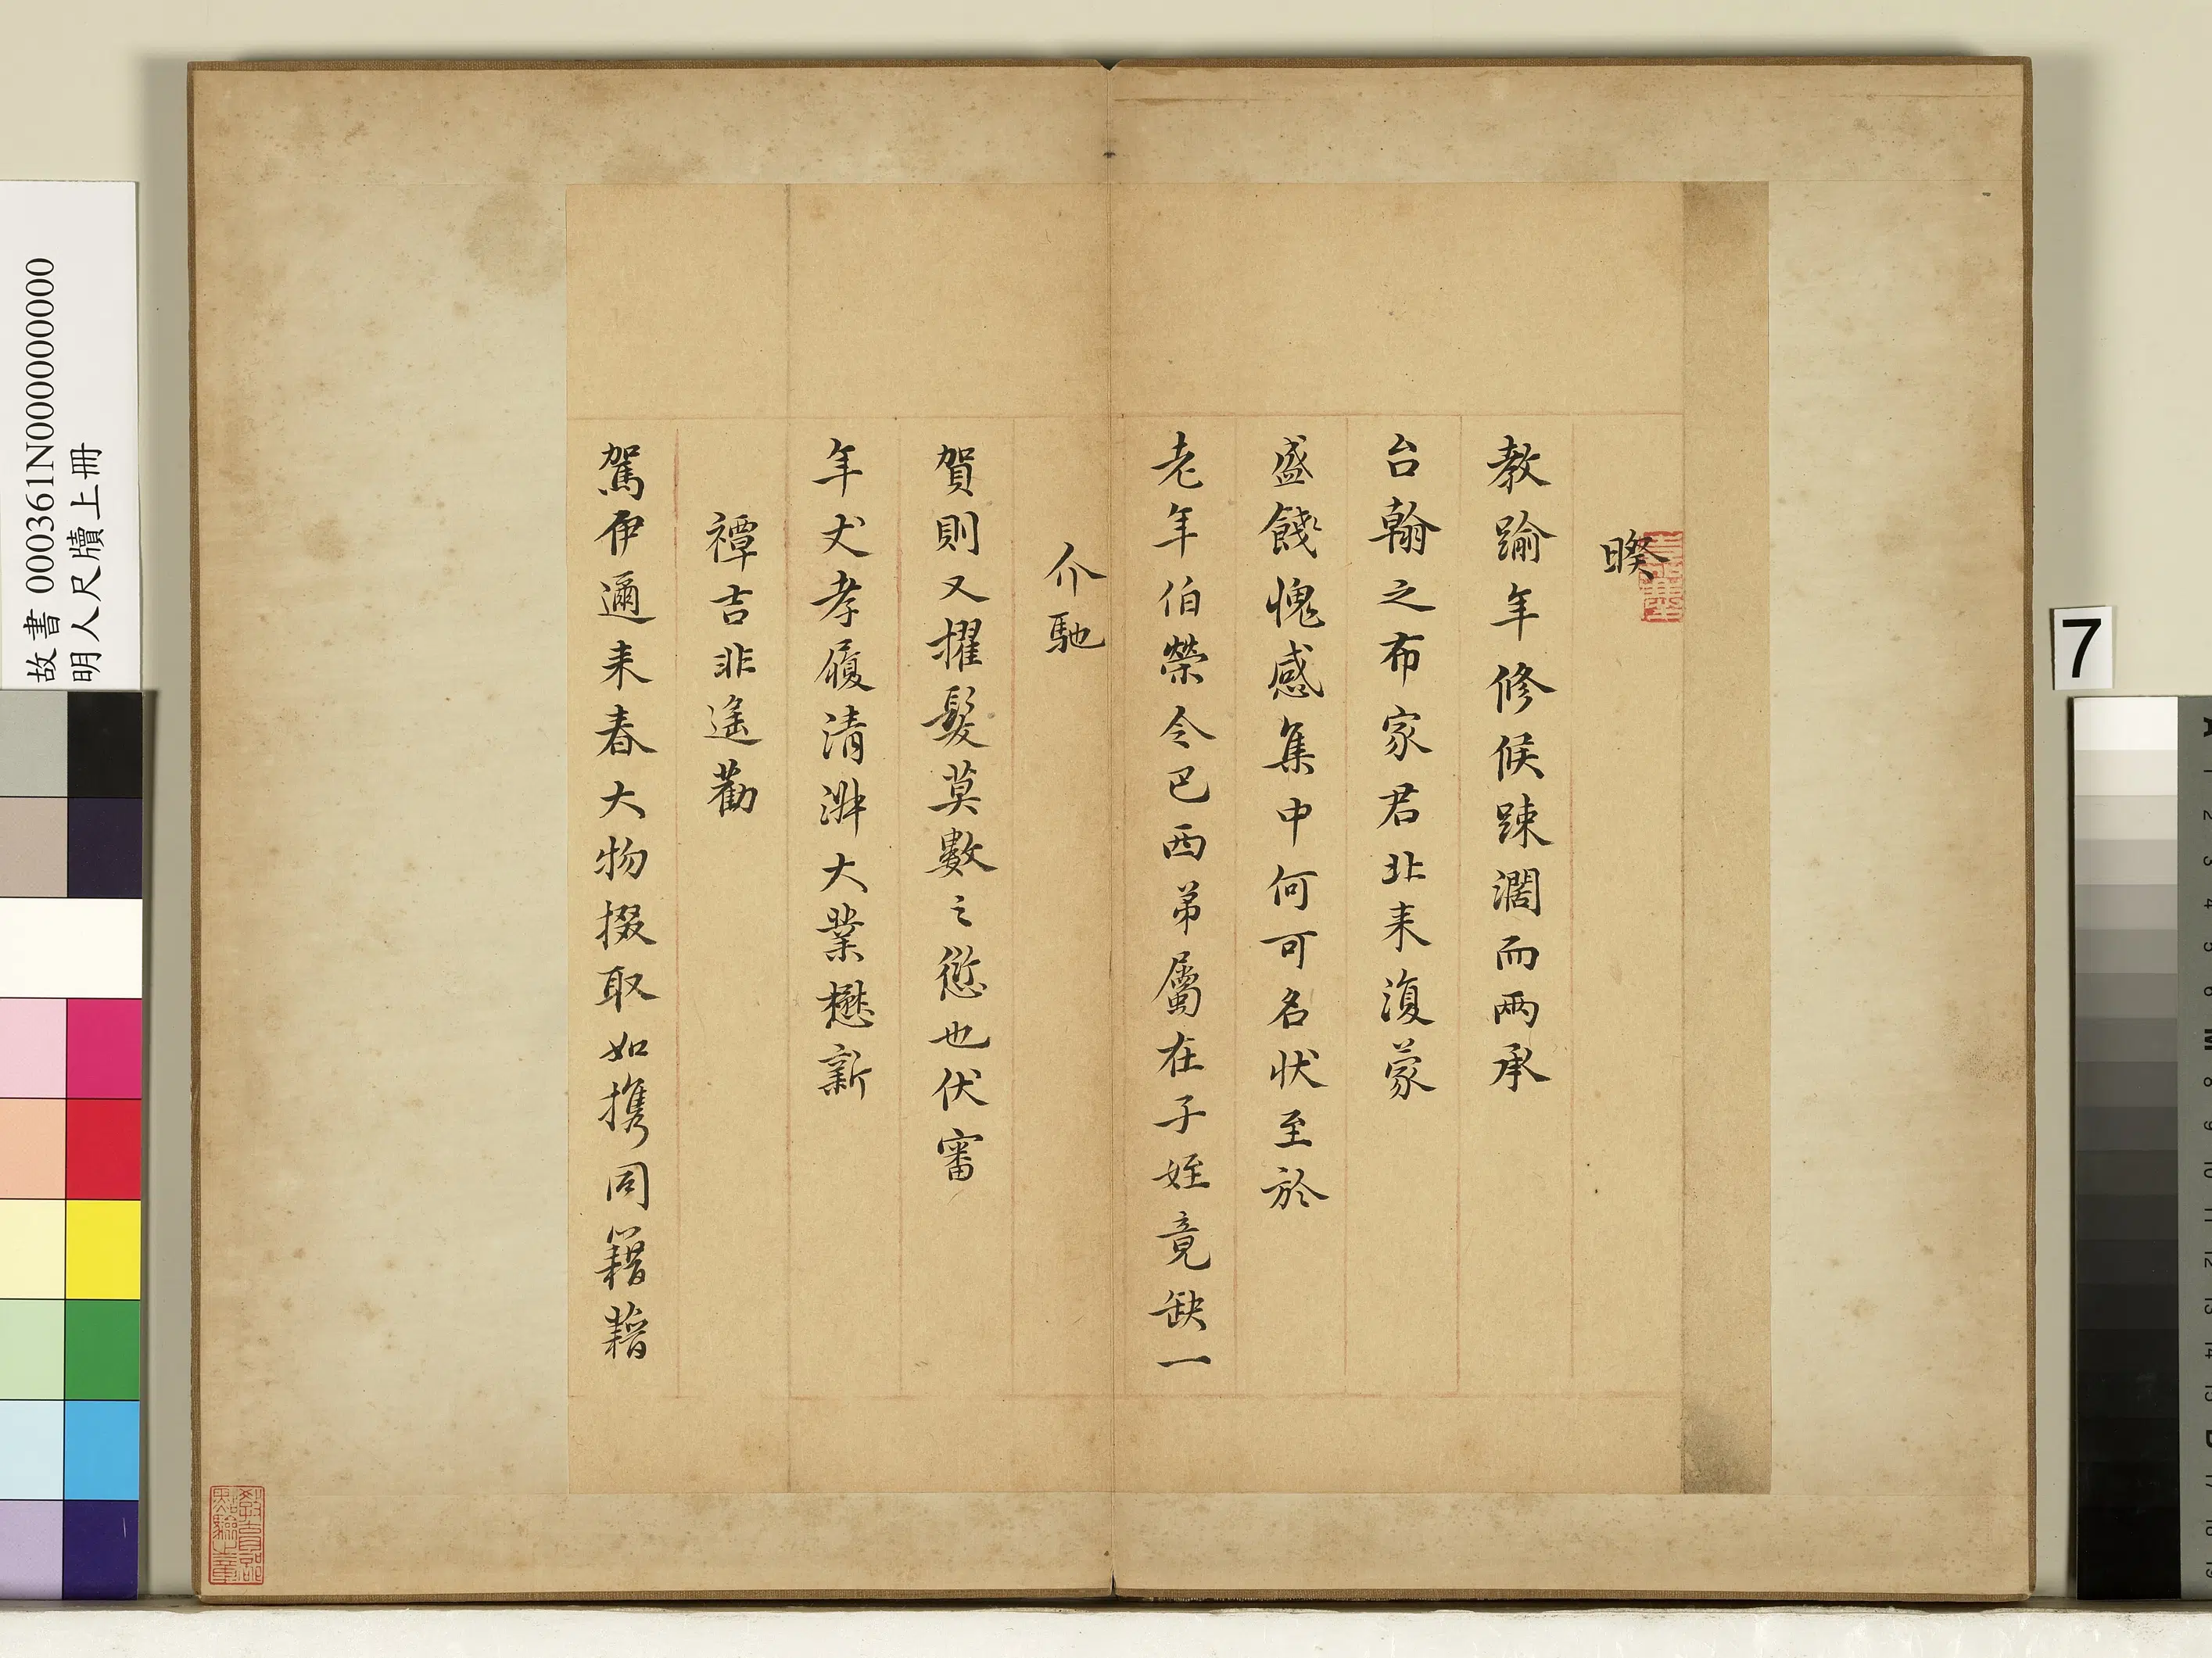 暌
教踰年修候踈濶而兩承
台翰之布家君北来復蒙
盛餞愧感集中何可名状至於
老年伯榮令巴西弟屬在子姪竟缺一
介馳
賀則又擢髮莫數之愆也伏審
年丈孝履清淑大業懋新
禫吉非遥勸
駕伊邇来春大物掇取如攜同籍藉
教育部點驗之章
故書 000361N000000000
明人尺牘上冊
7